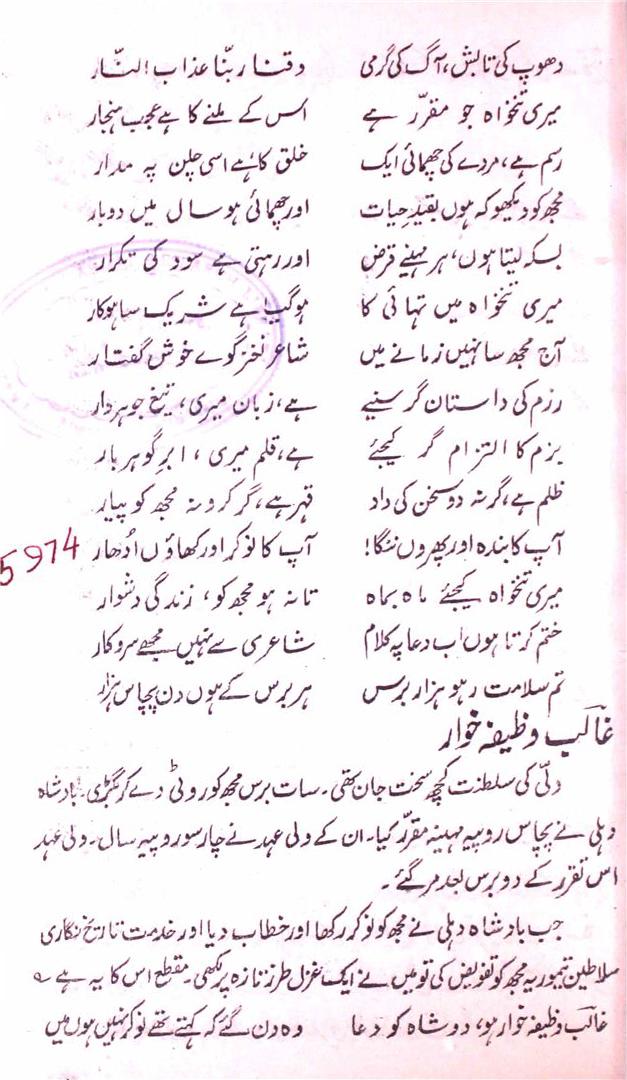 دھوپ کی تابش، آگ کی گرمی وقنا ربنّا عذاب النّار
میری تنخواہ جو مقرّر ہے اس کے ملنے کا ہے عجب ہنجار
رسم ہے، مردے کی چھمائی ایک خلق کا ہے اسی چلن پہ مدار
مجھ کو دیکھو کہ ہوں بقیدِ حیات اور چھمائی ہو سال میں دوبار
بسکہ لیتا ہوں، ہر مہینے قرض اور رہتی ہے سود کی تکرار
میری تنخواہ میں تہائی کا ہوگیا ہے شریک ساہوکار
آج مجھ سا نہیں زمانے میں شاعر نغز گوے خوش گفتار
رزم کی داستان گر سنیے ہے، زبان میری، تیغِ جوہردار
بزم کا التزام گر کیجئے ہے، قلم میری، ابرِ گوہر بار
ظلم ہے، گر نہ دو سخن کی داد قہر ہے، گر کرو نہ مجھ کو پیار
آپ کا بندہ اور پھروں ننگا! آپ کا نوکر اور کھاؤں اُدھار
5974
میری تنخواہ کیجئے ماہ بماہ تا نہ ہو مجھ کو، زندگی دشوار
ختم کرتا ہوں اب دعا پہ کلام شاعری سے نہیں مجھے سروکار
تم سلامت رہو ہزار برس ہر برس کے ہوں دن پچاس ہزار
غالب وظیفہ خوار
دلّی کی سلطنت کچھ سخت جان تھی۔ سات برس مجھ کو روٹی دے کر بگڑی۔ بادشاہ
دہلی نے پچاس روپیہ مہینہ مقرّر کیا۔ ان کے ولی عہد نے چار سو روپیہ سال۔ ولی عہد
اس تقرر کے دو برس بعد مر گئے۔
جب بادشاہ دہلی نے مجھ کو نوکر رکھا اور خطاب دیا اور خدمت تاریخ نگاری
سلاطین تیموریہ مجھ کو تفویض کی تو میں نے ایک غزل طرز تازہ پر لکھی۔ مقطع اس کا یہ ہے ؎
غالب وظیفہ خوار ہو، دو شاہ کو دعا وہ دن گئے کہ کہتے تھے نوکر نہیں ہوں میں